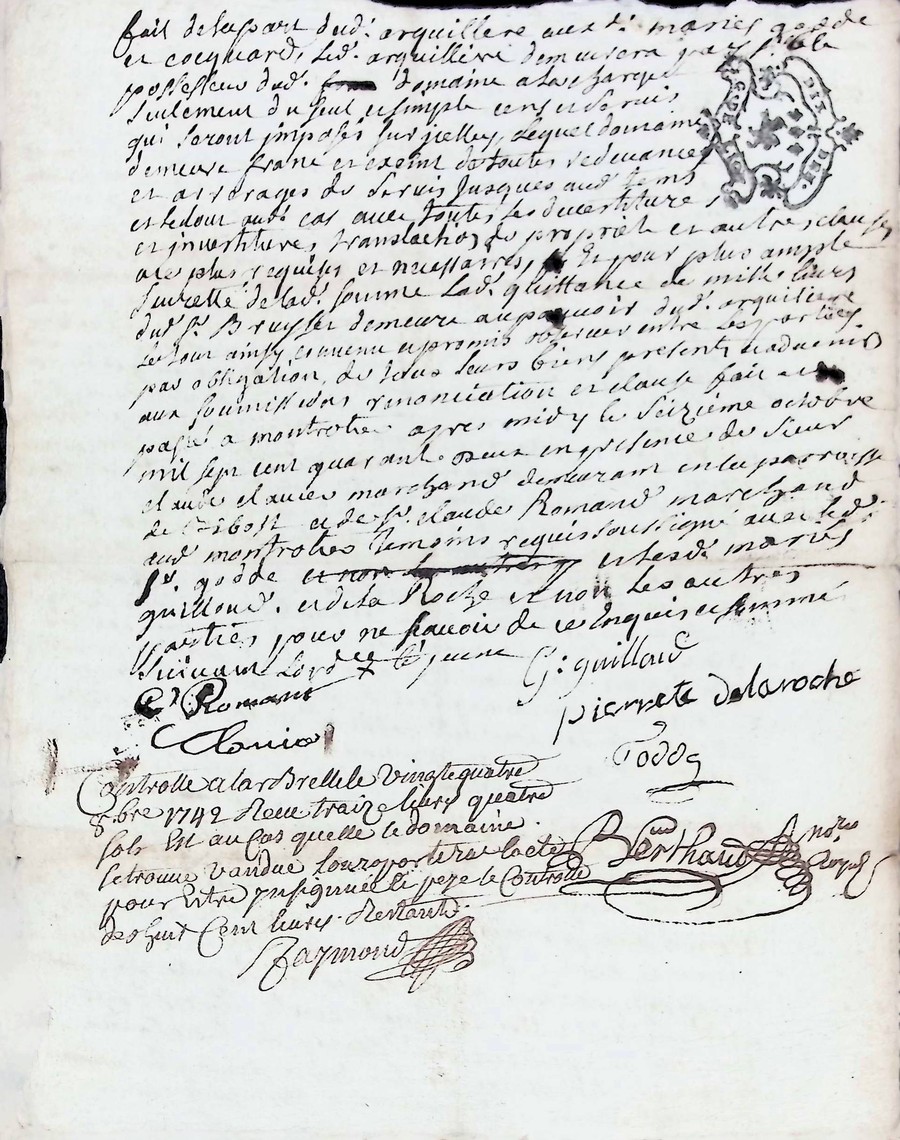 fait de la part dud. arquillere aux d. mariés godde
et cocquard, led. arquilliere demeurera paisible
possesseur dud. domaine a la charge
seulement du seul et simple cens et servis
qui seront imposés sur jcelluy, lequel domaine
demeure franc et exemt de toutes redevances
et arrerages de servis jusques aud. tems
et le tout aud. cas avec toutes les devestitures
et jnvestitures, translation de propriete et autres clauses
a ce plus requises et necessaires, Et pour plus ample
suretté de lad. somme lad. quittance de mille livres
dud. Sr. Bruyset demeure au pouvoir dud. arquilliere
le tout ainsy convenu et promis observer entre les parties
par obligation de tous leurs biens presents et advenir
aux soumissions renonciation et clause fait et
passé a montrotier apres midy le seizième octobre
mil sept cent quarante deux en presence de sieur
claude clavier marchand demeurant en la parroisse
de et de Sr. claude Romand marchand
aud. montrotier temoins requis soussigné avec led.
Sr. godde et les d. mariés
guilloud. et de la Roche et non les autres
parties pour ne scavoir de ce enquis et sommé
suivant l'ord.ce
G: guilloud
Cl Romand
pierrete delaroche
Clavier
Godde
Controllé a larbrelle le vingtequatre
8bre 1742 Receu traize livres quatre
sols Est au cas quelle le domaine
se trouve vandue lon raportera lacte
pour Estre jnsignué et peye le Controlle
de huit Cent livres Restants.
Berthaud nore
Royal
Raymond